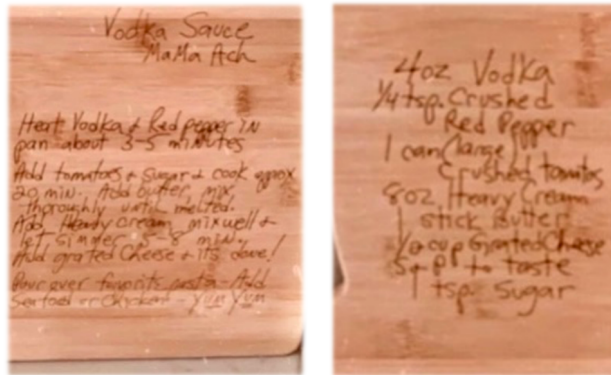 Vodka Sauce
MaMa Ach
Heat Vodka & Red pepper in
pan about 3-5 minutes
Add tomatoes & sugar & cook approx
20 min. Add butter, mix
thoroughly until melted.
Add Heavy cream, mix well &
let simmer 5-8 min.
Add grated cheese & its done!
Pour over favorite pasta - Add
Seafood or Chicken - Yum Yum
4oz Vodka
1/4 tsp. Crushed
Red Pepper
1 can Large
Crushed tomatoes
8oz Heavy Cream
1 stick Butter
cup Grated Cheese
S & P to taste
1 tsp. Sugar